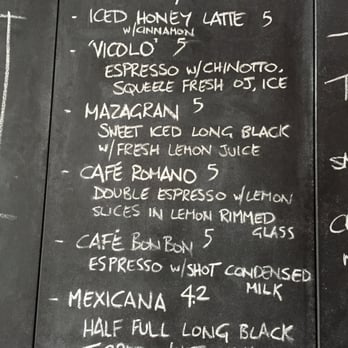 - ICED HONEY LATTE 5
W/CINNAMON
- 'VICOLO' 5
ESPRESSO W/CHINOTTO,
SQUEEZE FRESH OJ, ICE
- MAZAGRAN 5
SWEET ICED LONG BLACK
W/FRESH LEMON JUICE
- CAFÉ ROMANO 5
DOUBLE ESPRESSO W/LEMON
SLICES IN LEMON RIMMED
GLASS
- CAFÉ BONBON 5
ESPRESSO W/SHOT CONDENSED
MILK
- MEXICANA 42
HALF FULL LONG BLACK